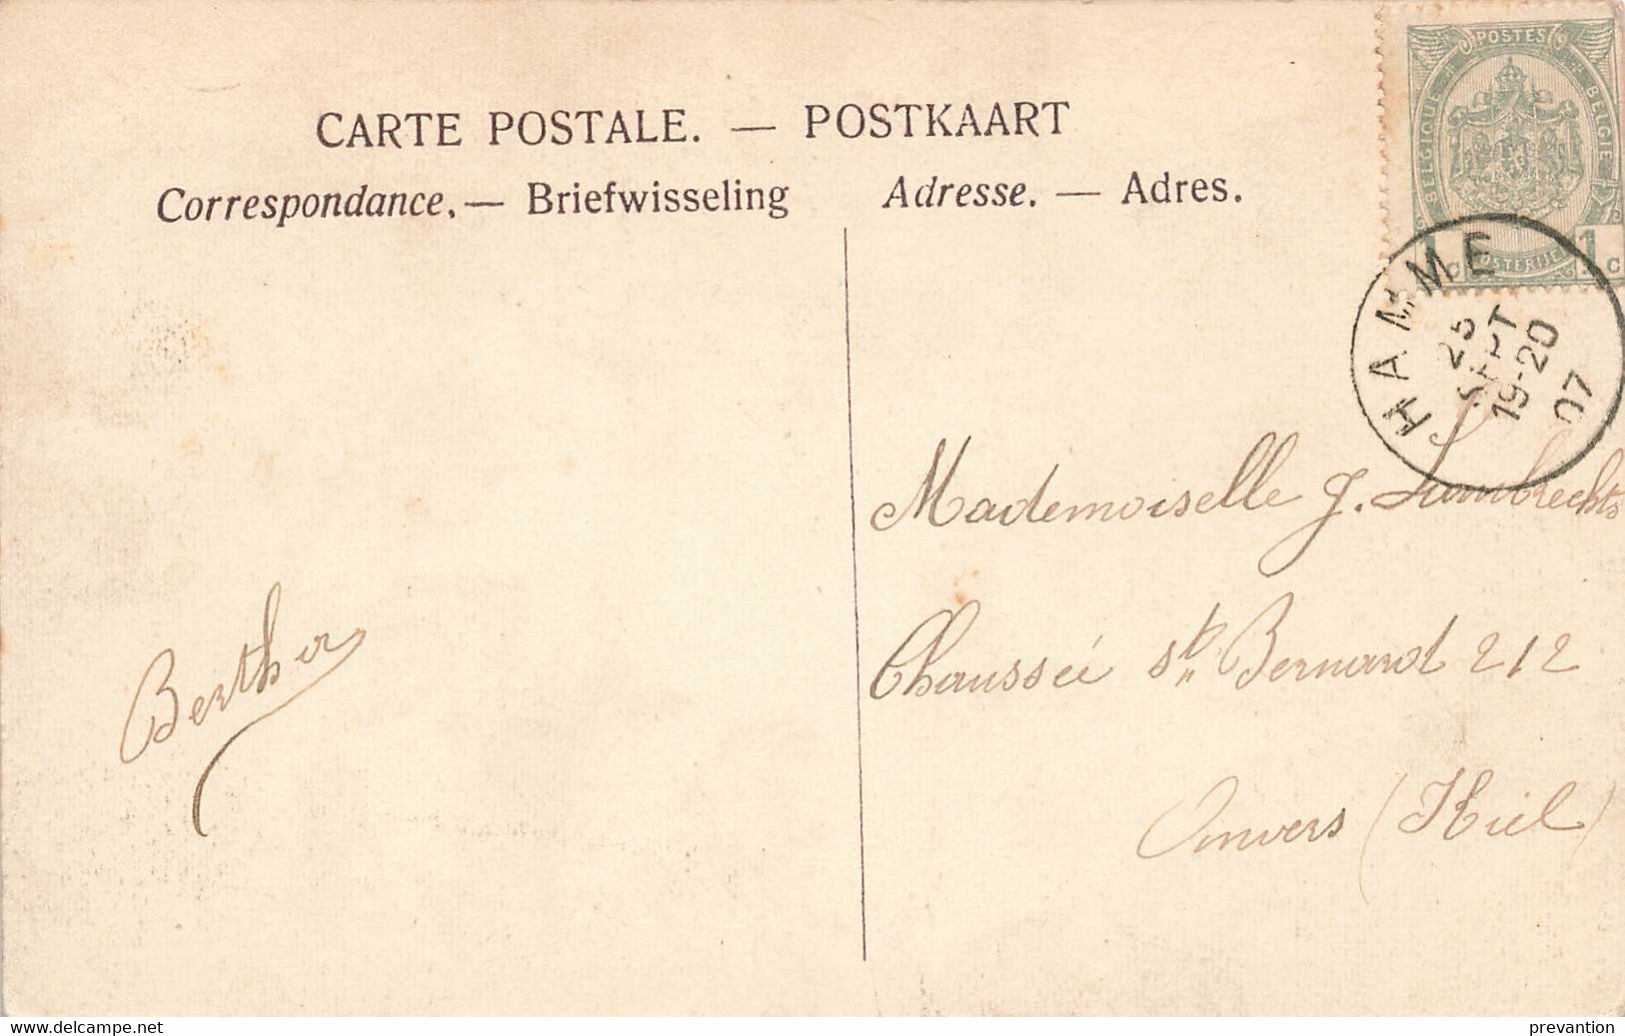 POSTES
BELGIQUE
BELGIË
1 c
POSTERIJE
1 c
CARTE POSTALE. — POSTKAART
Correspondance. — Briefwisseling
Adresse. — Adres.
HAMME
25
SEPT
19-20
07
Mademoiselle J. Lambrechts
Chaussée St Bernard 212
Anvers (Kiel)
Bertha
www.delcampe.net
prevantion